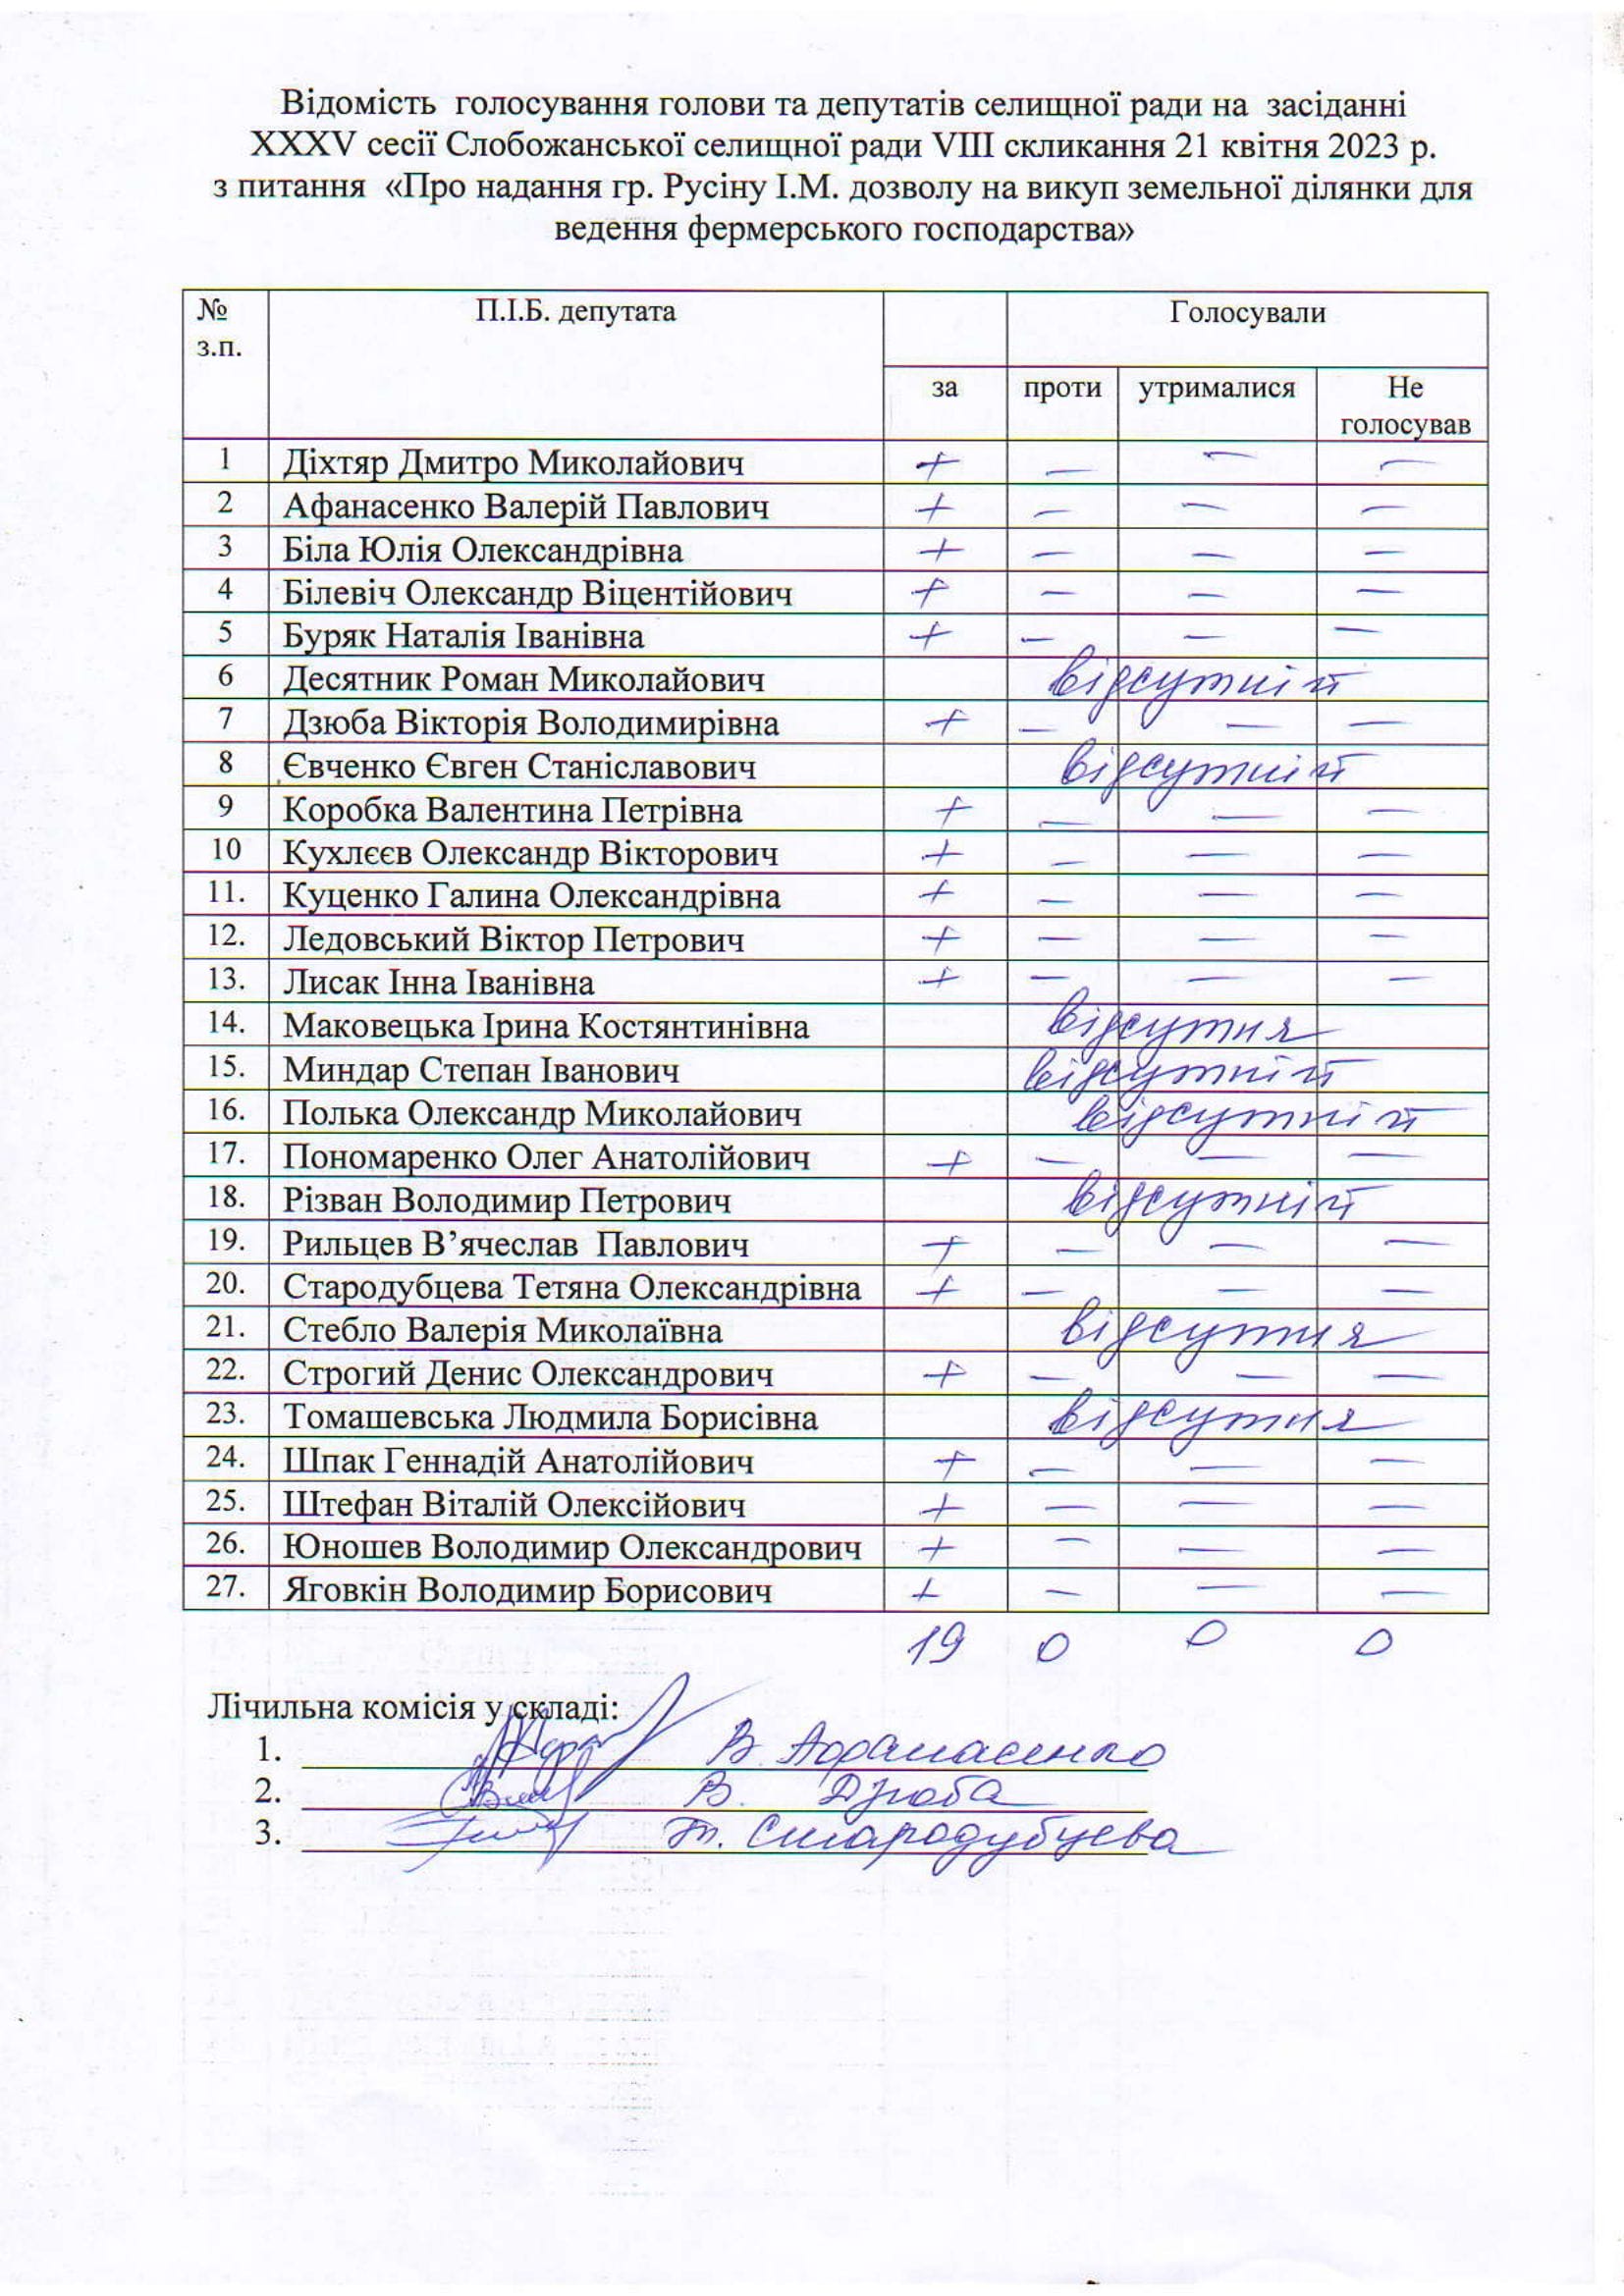 Відомість голосування голови та депутатів селищної ради на засіданні
XXXV сесії Слобожанської селищної ради VIII скликання 21 квітня 2023 р.
з питання «Про надання гр. Русіну І.М. дозволу на викуп земельної ділянки для
ведення фермерського господарства»
№ з.п. П.І.Б. депутата Голосували
за проти утрималися Не голосував
1 Діхтяр Дмитро Миколайович + — — —
2 Афанасенко Валерій Павлович + — — —
3 Біла Юлія Олександрівна + — — —
4 Білевіч Олександр Віцентійович + — — —
5 Буряк Наталія Іванівна + — — —
6 Десятник Роман Миколайович відсутній
7 Дзюба Вікторія Володимирівна + — — —
8 Євченко Євген Станіславович відсутній
9 Коробка Валентина Петрівна + — — —
10 Кухлєєв Олександр Вікторович + — — —
11. Куценко Галина Олександрівна + — — —
12. Ледовський Віктор Петрович + — — —
13. Лисак Інна Іванівна + — — —
14. Маковецька Ірина Костянтинівна відсутня
15. Миндар Степан Іванович відсутній
16. Полька Олександр Миколайович відсутній
17. Пономаренко Олег Анатолійович + — — —
18. Різван Володимир Петрович відсутній
19. Рильцев В’ячеслав Павлович + — — —
20. Стародубцева Тетяна Олександрівна + — — —
21. Стебло Валерія Миколаївна відсутня
22. Строгий Денис Олександрович + — — —
23. Томашевська Людмила Борисівна відсутня
24. Шпак Геннадій Анатолійович + — — —
25. Штефан Віталій Олексійович + — — —
26. Юношев Володимир Олександрович + — — —
27. Яговкін Володимир Борисович + — — —
19 0 0 0
Лічильна комісія у складі:
1. В. Афанасенко
2. В. Дзюба
3. Т. Стародубцева